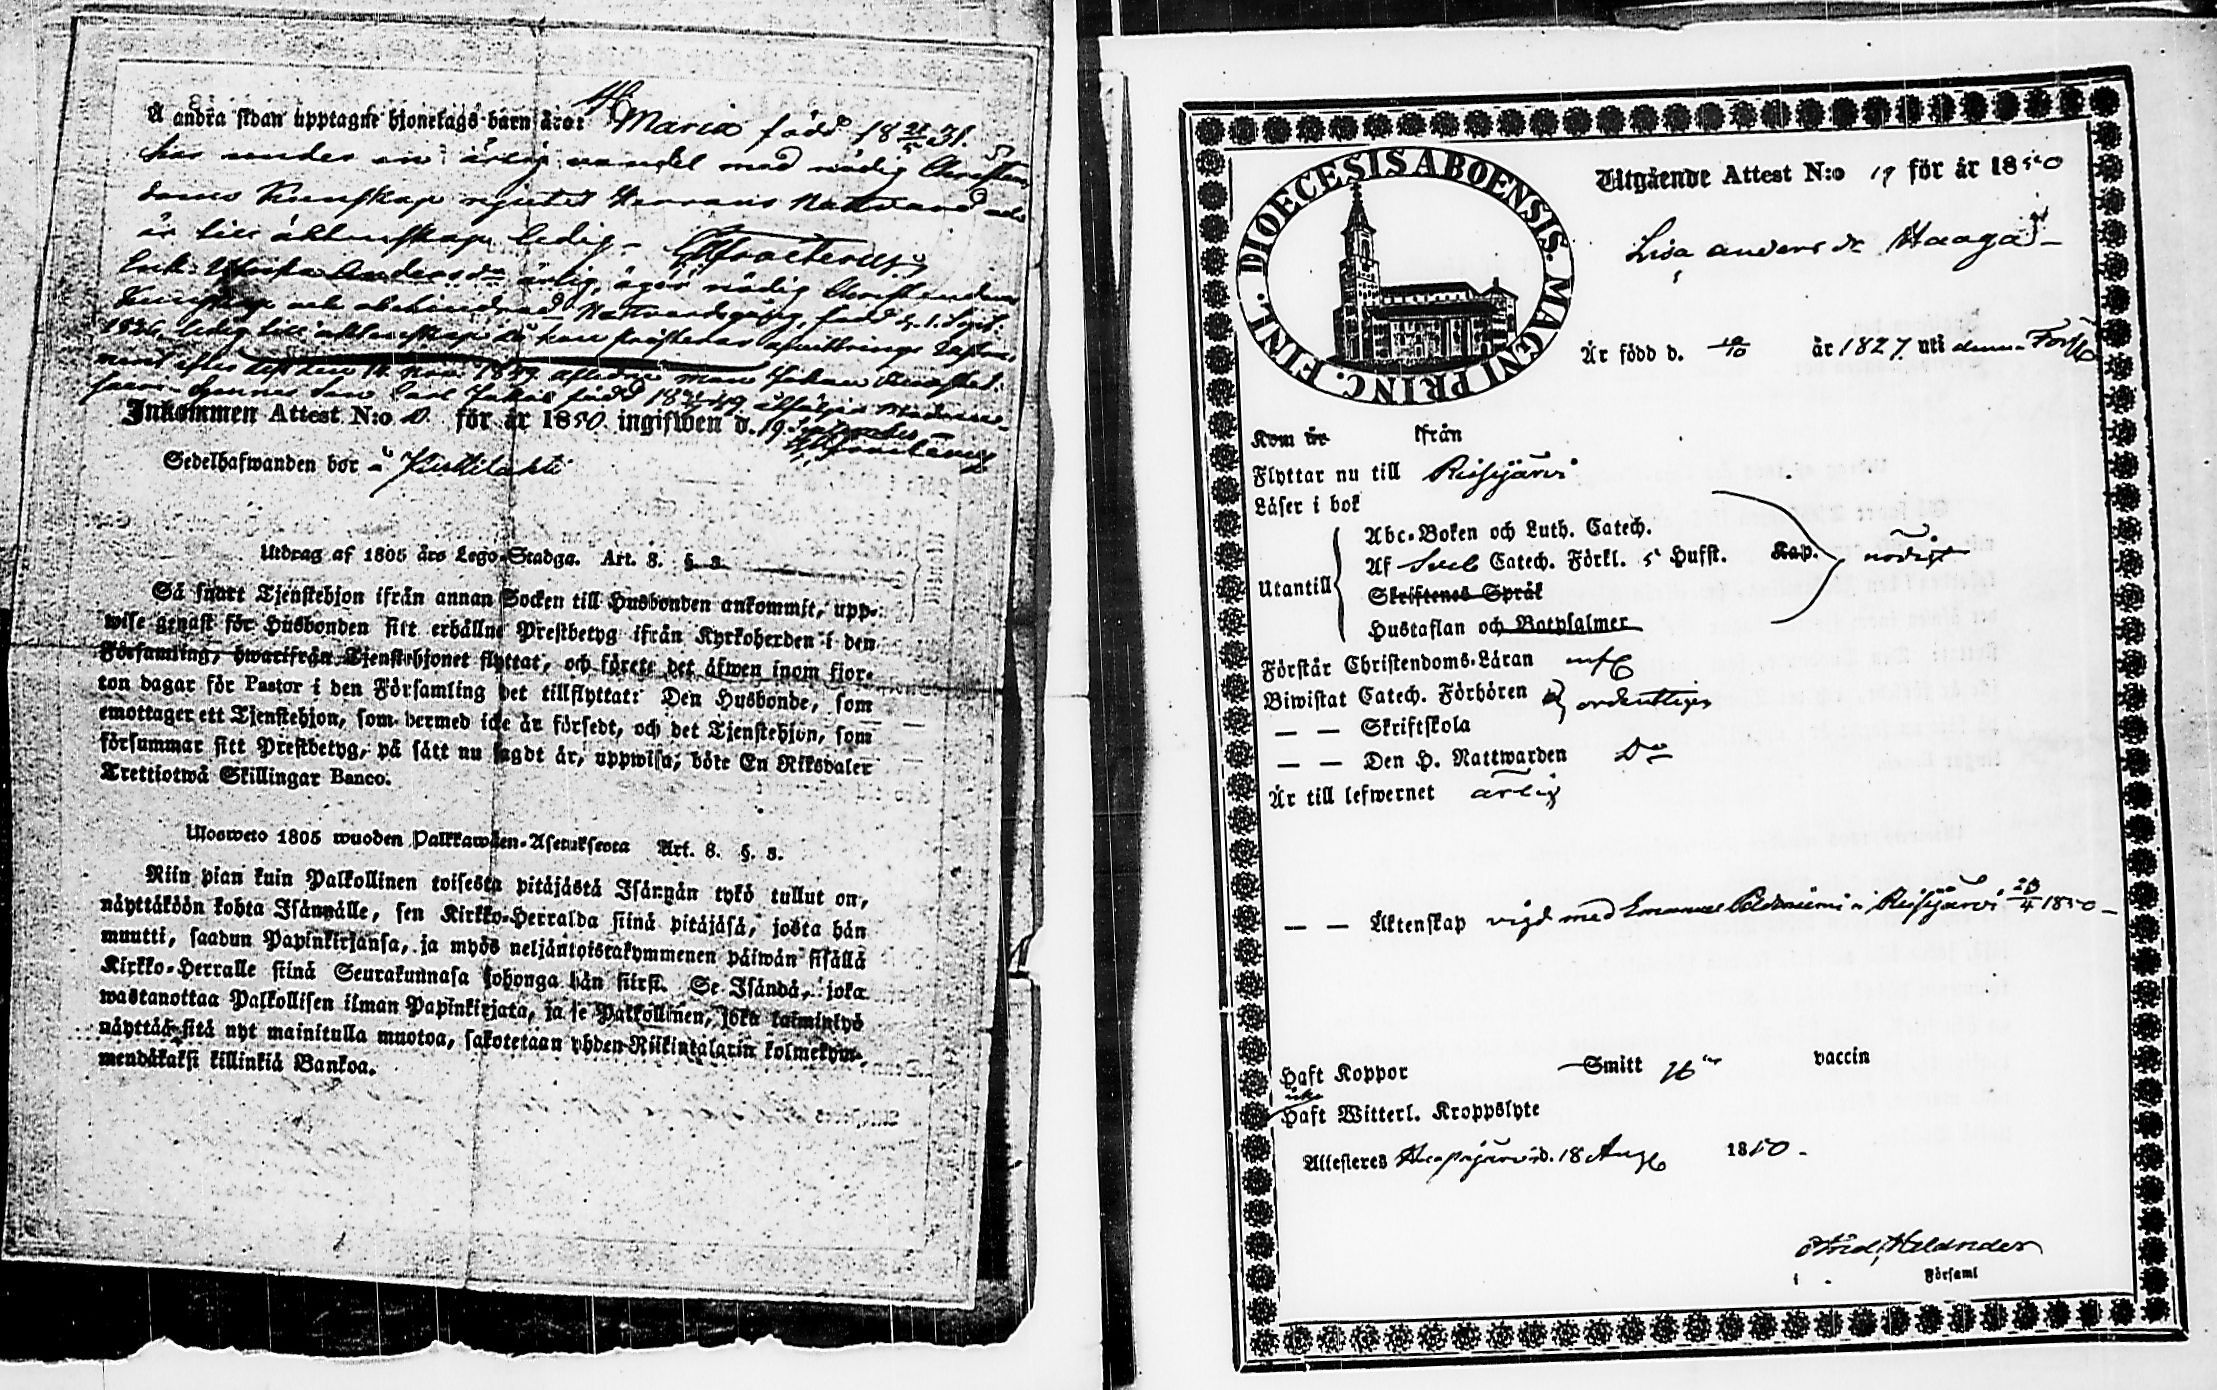 Å andra sidan upptagne hjonelags barn äro: Maria född 18 21/5 31.
har under en ärlig vandel med nödig Christen
doms Kunskap njutit Herrans Nattvard och
är till äktenskap ledig.
Enk: Andersdr ärlig, äger nödig Christendoms
Kunskap och obehindrad Nattvardsgång, född d. 1. Sept:
1826, ledig till äktenskap
den 14 Nov. 1849 afledne man Johan
son Carl Jakob född 18 49 åtföljer Modren
Inkommen Attest N:o för år 1850. ingifwen d. 19
Sedelhafwanden bor i
Utdrag af 1805 års Lego-Stadga. Art. 8. §. 3.
Så snart Tjenstehjon ifrån annan Socken till Husbonden ankommit, upp-
wise genast för Husbonden sitt erhållne Prestbetyg ifrån Kyrkoherden i den
Församling, hwarifrån Tjenstehjonet flyttat, och förete det äfwen inom fjor-
ton dagar för Pastor i den Församling det tillflyttat: Den Husbonde, som
emottager ett Tjenstehjon, som dermed icke är försedt, och det Tjenstehjon, som
försummar sitt Prestbetyg, på sätt nu sagdt är, uppwisa, böte En Riksdaler
Trettiotwå Skillingar Banco.
Ulosweto 1805 wuoden Palkkawäen-Asetuksesta Art. 8. §. 3.
Niin pian kuin Palkollinen toisesta pitäjästä Isännän tykö tullut on,
näyttäköön kohta Isännälle, sen Kirkko-Herralda siinä pitäjäsä, josta hän
muutti, saadun Papinkirjansa, ja myös neljäntoistakymmenen päiwän sisällä
Kirkko-Herralle siinä Seurakunnasa johonga hän siirsi. Se Isändä, joka
wastanottaa Palkollisen ilman Papinkirjata, ja se Palkollinen, joka laiminlyö
näyttää sitä nyt mainitulla muotoa, sakotetaan yhden Riikintalarin kolmekym-
mendäkaksi killinkiä Bankoa.
DIOECESIS ABOENSIS. MAGNI PRINC. FINL.
Utgående Attest N:o 19 för år 1850
Lisa Andersdr Haaga
Är född d. år 1827 uti denna Förs
Kom år ifrån
Flyttar nu till Reisjärvi
Läser i bok
Utantill
Abc-Boken och Luth. Catech.
Af Sveb Catech. Förkl. 5 Hufst. Kap. nödigt
Skriftenes Språk
Hustaflan och Botpsalmer
Förstår Christendoms-Läran
Biwistat Catech. Förhören ordentligen
— — Skriftskola
— — Den H. Nattwarden Do
Är till lefwernet ärlig
— — Äktenskap vigd med Emanuel i Reisjärvi 28/4 1850
Haft Koppor Smitt vaccin
icke
Haft Witterl. Kroppslyte
Attesteres Haapajärvi d. 18 Aug 1850
i Församl